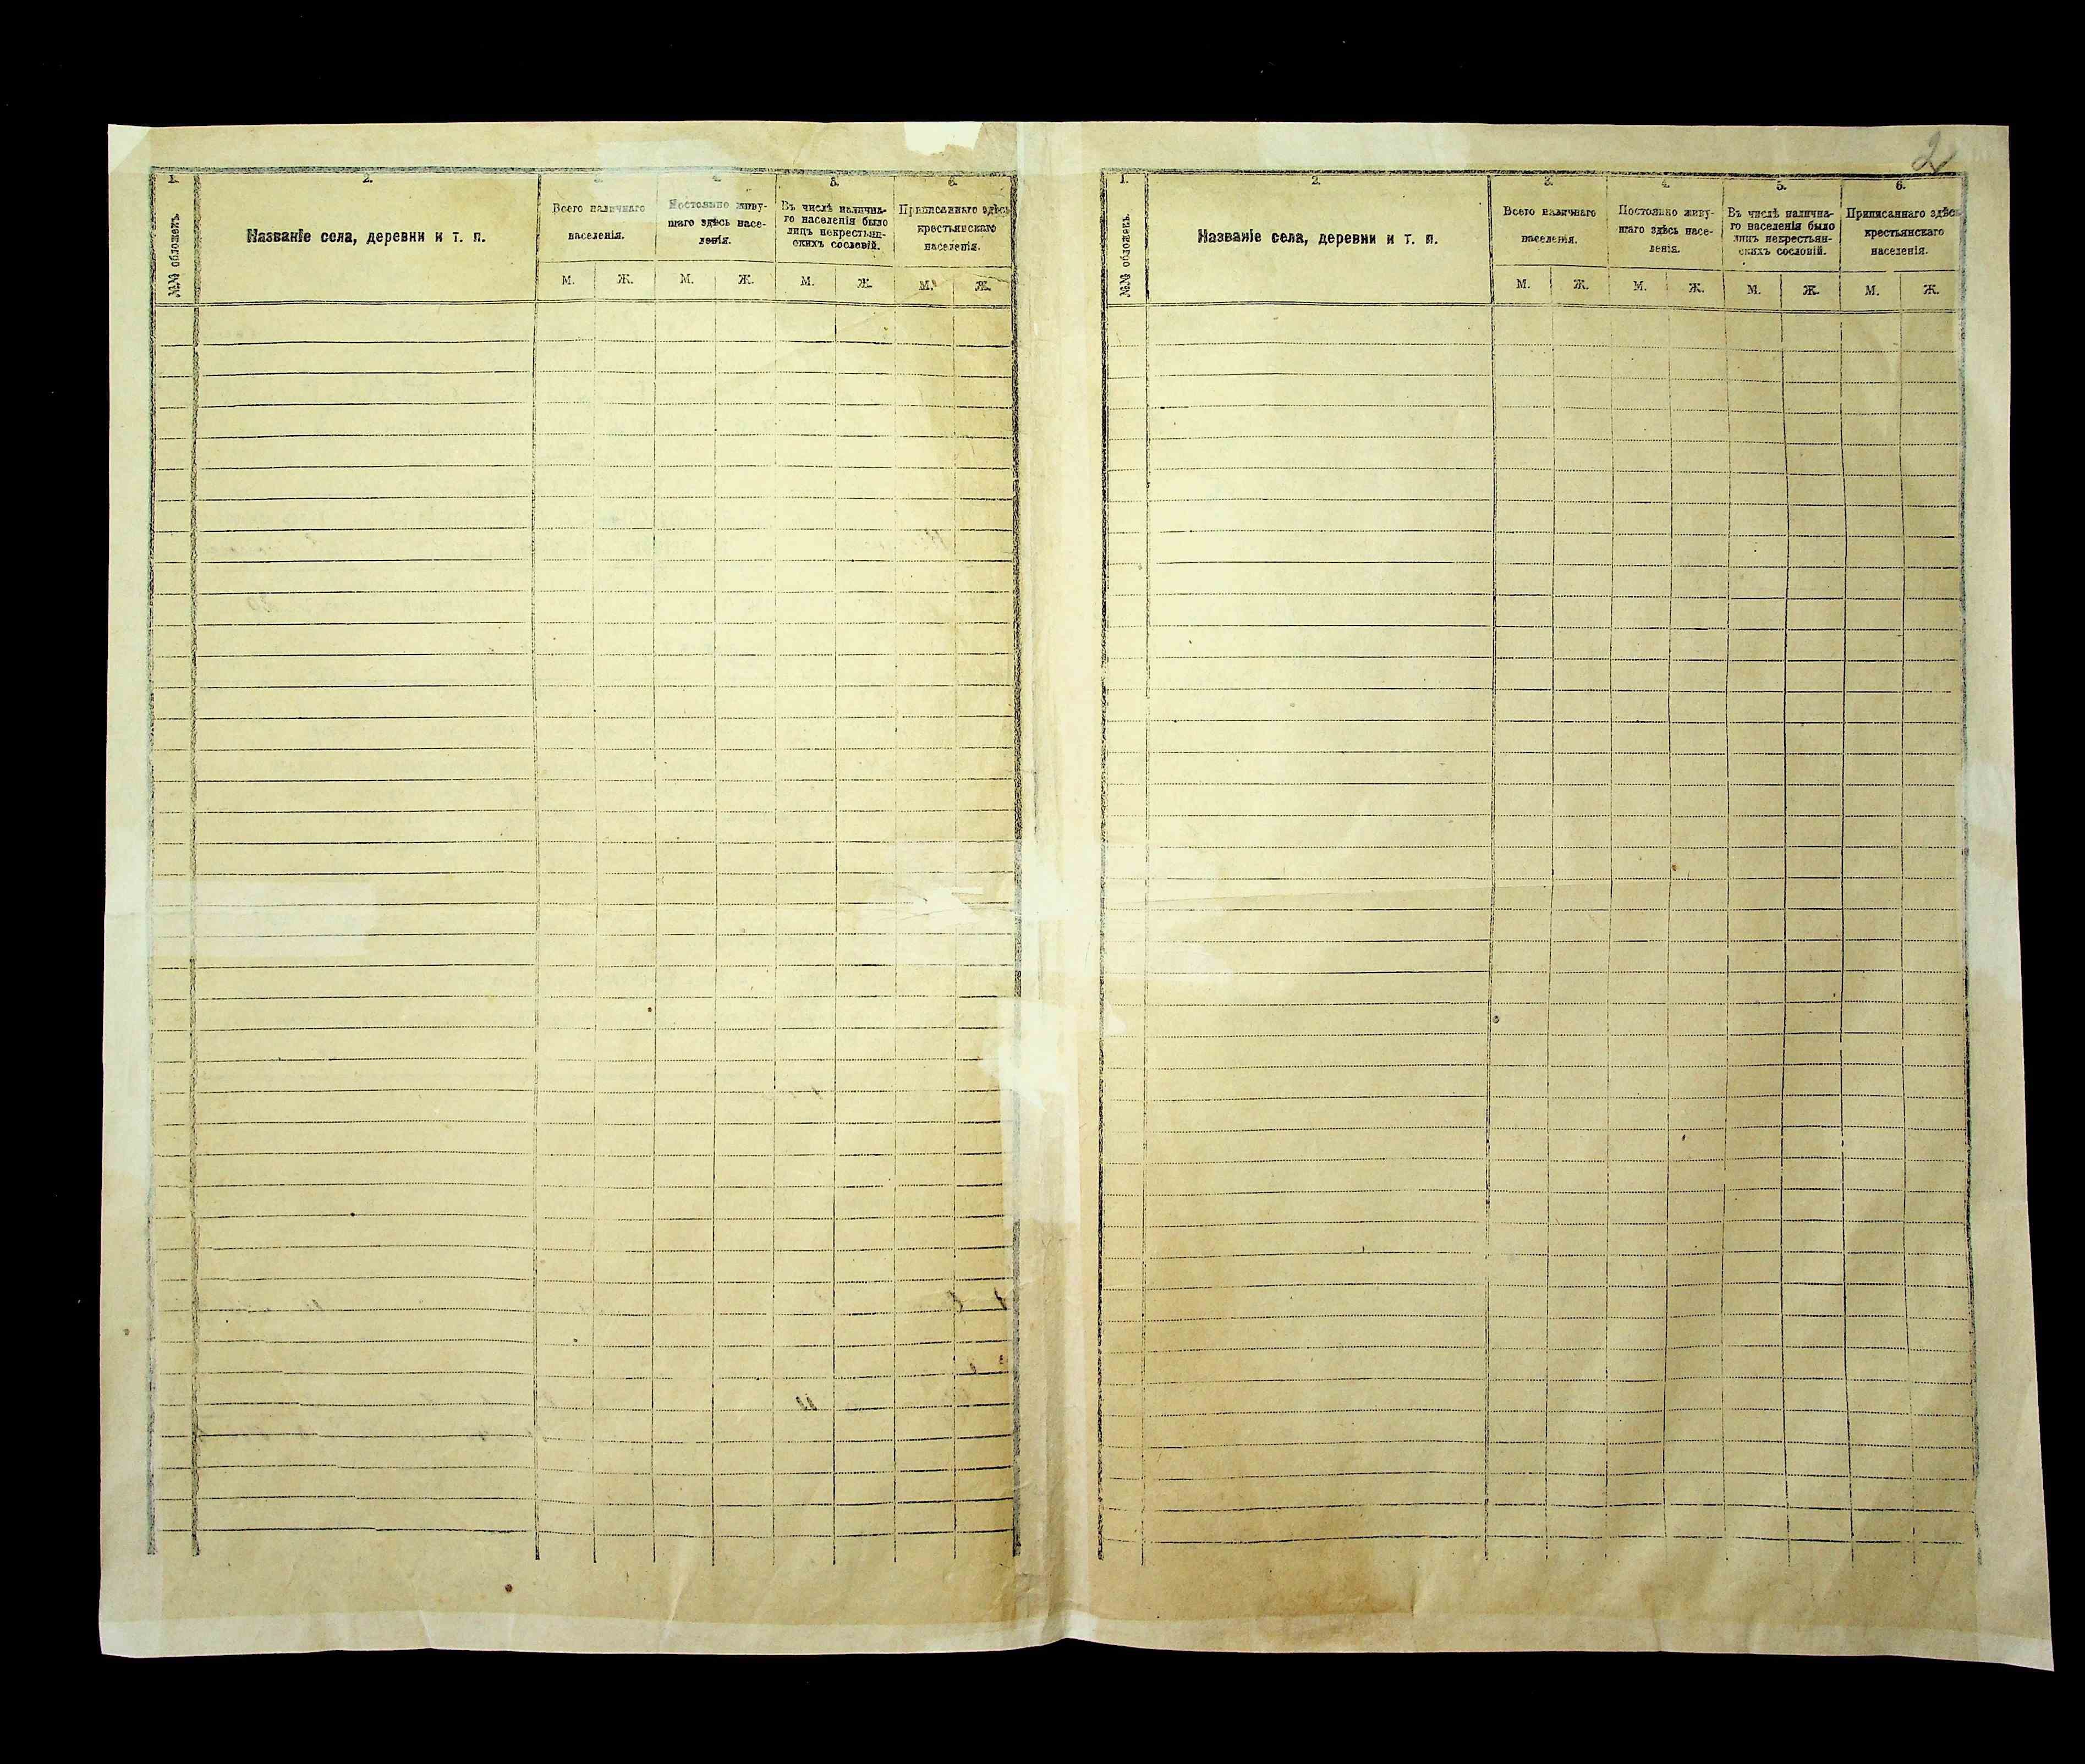 2
1. 2. 3. 4. 5. 6.
№№ обложекъ.
Названіе села, деревни и т. п.
Всего наличнаго
населенія.
Постоянно живу-
щаго здѣсь насе-
ленія.
Въ числѣ налична-
го населенія было
лицъ некрестьян-
скихъ сословій.
Приписаннаго здѣсь
крестьянскаго
населенія.
М. Ж. М. Ж. М. Ж. М. Ж.
1. 2. 3. 4. 5. 6.
№№ обложекъ.
Названіе села, деревни и т. п.
Всего наличнаго
населенія.
Постоянно живу-
щаго здѣсь насе-
ленія.
Въ числѣ налична-
го населенія было
лицъ некрестьян-
скихъ сословій.
Приписаннаго здѣсь
крестьянскаго
населенія.
М. Ж. М. Ж. М. Ж. М. Ж.